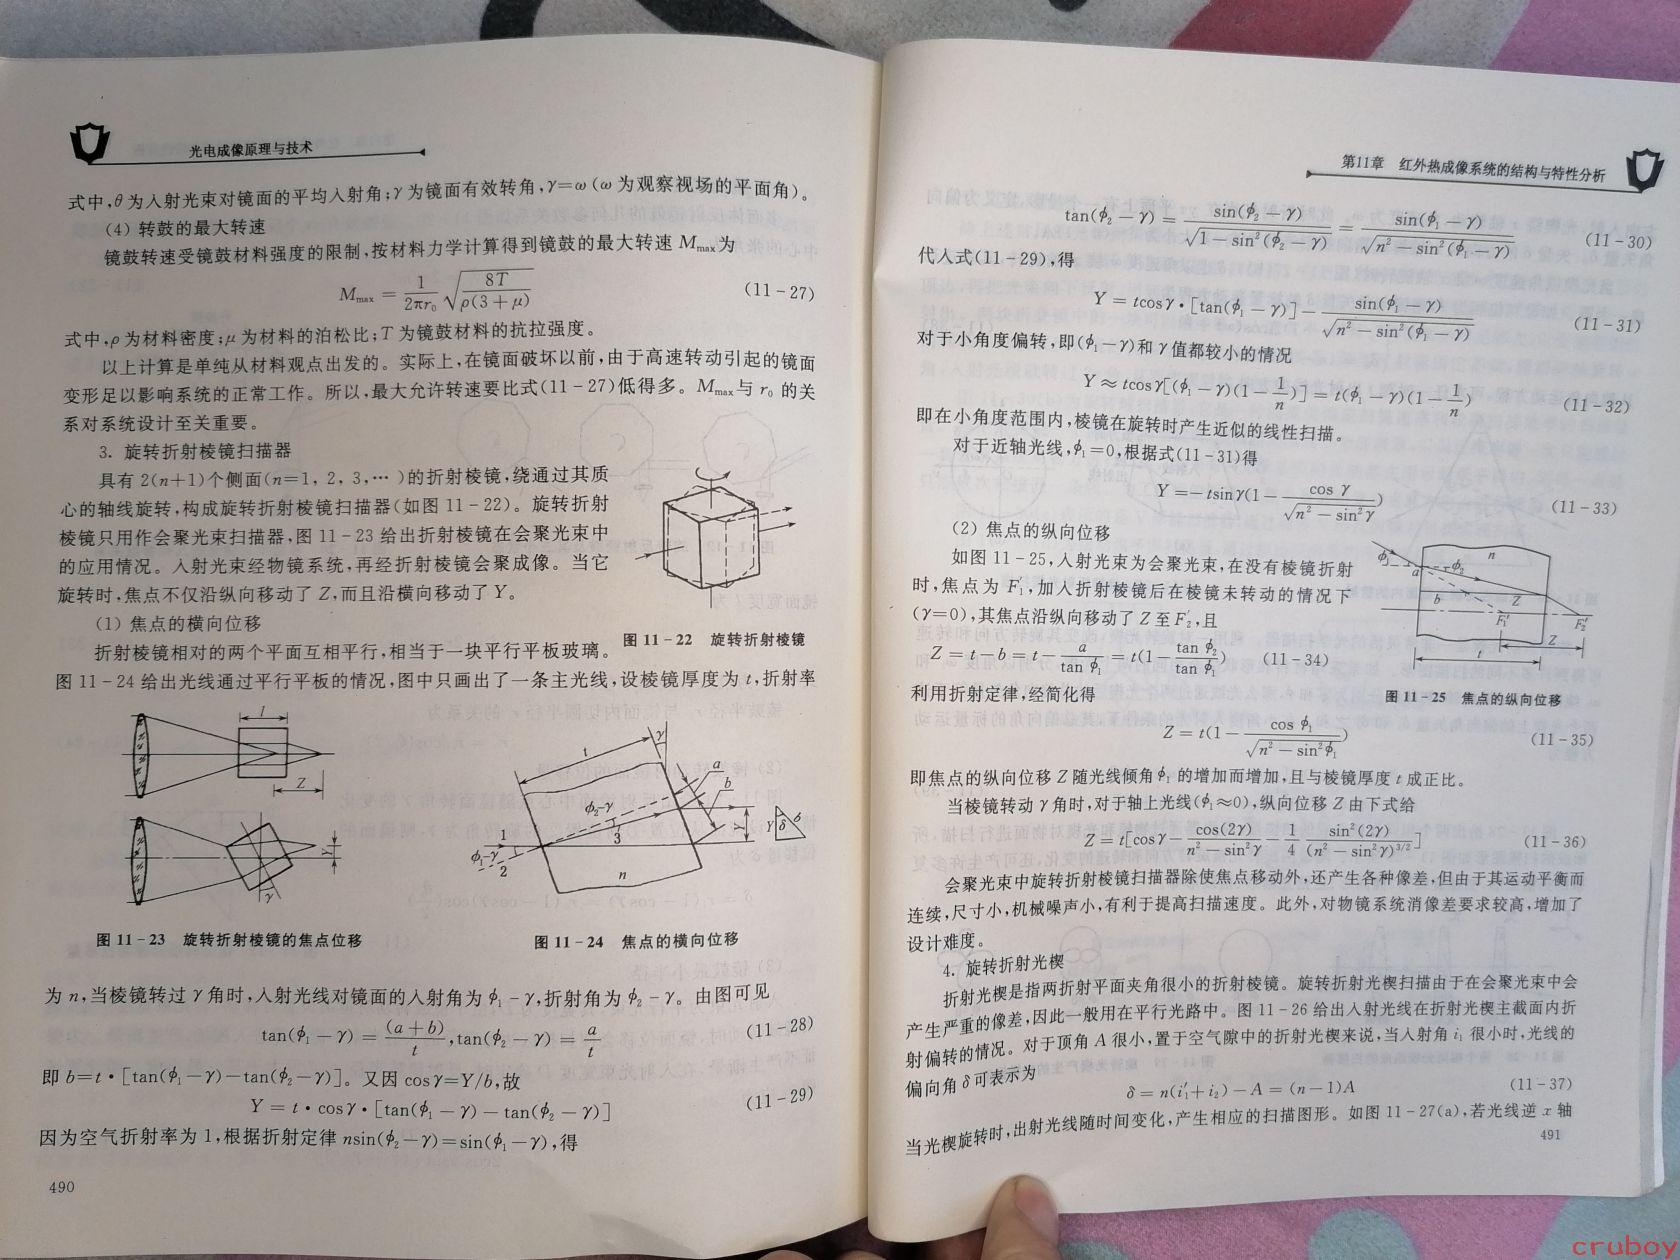 光电成像原理与技术
式中,θ为入射光束对镜面的平均入射角;γ为镜面有效转角,γ=ω(ω为观察视场的平面角)。
(4) 转鼓的最大转速
镜鼓转速受镜鼓材料强度的限制,按材料力学计算得到镜鼓的最大转速 Mmax为
Mmax = 1/(2πr₀) √(8T/(ρ(3+μ))) (11-27)
式中,ρ为材料密度;μ为材料的泊松比;T为镜鼓材料的抗拉强度。
以上计算是单纯从材料观点出发的。实际上,在镜面破坏以前,由于高速转动引起的镜面
变形足以影响系统的正常工作。所以,最大允许转速要比式(11-27)低得多。Mmax与 r₀ 的关
系对系统设计至关重要。
3. 旋转折射棱镜扫描器
具有 2(n+1)个侧面(n=1, 2, 3,…)的折射棱镜,绕通过其质
心的轴线旋转,构成旋转折射棱镜扫描器(如图 11-22)。旋转折射
棱镜只用作会聚光束扫描器,图 11-23 给出折射棱镜在会聚光束中
的应用情况。入射光束经物镜系统,再经折射棱镜会聚成像。当它
旋转时,焦点不仅沿纵向移动了 Z,而且沿横向移动了 Y。
(1) 焦点的横向位移
图 11-22 旋转折射棱镜
折射棱镜相对的两个平面互相平行,相当于一块平行平板玻璃。
图 11-24 给出光线通过平行平板的情况,图中只画出了一条主光线,设棱镜厚度为 t,折射率
l
Z
Y
γ
图 11-23 旋转折射棱镜的焦点位移
t
γ
a
b
ϕ₂-γ
1
3
ϕ₁-γ
2
n
Y
Y
δ
δ
图 11-24 焦点的横向位移
为 n,当棱镜转过 γ 角时,入射光线对镜面的入射角为 ϕ₁-γ,折射角为 ϕ₂-γ。由图可见
tan(ϕ₁-γ) = (a+b)/t, tan(ϕ₂-γ) = a/t (11-28)
即 b=t·[tan(ϕ₁-γ)-tan(ϕ₂-γ)]。又因 cosγ=Y/b,故
Y = t·cosγ·[tan(ϕ₁-γ)-tan(ϕ₂-γ)] (11-29)
因为空气折射率为 1,根据折射定律 nsin(ϕ₂-γ)=sin(ϕ₁-γ),得
490
第11章 红外热成像系统的结构与特性分析
tan(ϕ₂-γ) = sin(ϕ₂-γ)/√(1-sin²(ϕ₂-γ)) = sin(ϕ₁-γ)/√(n²-sin²(ϕ₁-γ)) (11-30)
代入式(11-29),得
Y = tcosγ·[tan(ϕ₁-γ)] - sin(ϕ₁-γ)/√(n²-sin²(ϕ₁-γ)) (11-31)
对于小角度偏转,即(ϕ₁-γ)和 γ 值都较小的情况
Y ≈ tcosγ[(ϕ₁-γ)(1-1/n)] = t(ϕ₁-γ)(1-1/n) (11-32)
即在小角度范围内,棱镜在旋转时产生近似的线性扫描。
对于近轴光线,ϕ₁=0,根据式(11-31)得
Y = -tsinγ(1 - cosγ/√(n²-sin²γ)) (11-33)
(2) 焦点的纵向位移
如图 11-25,入射光束为会聚光束,在没有棱镜折射
时,焦点为 F₁′,加入折射棱镜后在棱镜未转动的情况下
(γ=0),其焦点沿纵向移动了 Z 至 F₂′,且
Z = t-b = t - a/tanϕ₁ = t(1 - tanϕ₂/tanϕ₁) (11-34)
利用折射定律,经简化得
ϕ₁
a
ϕ₂
n
b
Z
F₁′
F₂′
Z
t
图 11-25 焦点的纵向位移
Z = t(1 - cosϕ₁/√(n²-sin²ϕ₁)) (11-35)
即焦点的纵向位移 Z 随光线倾角 ϕ₁ 的增加而增加,且与棱镜厚度 t 成正比。
当棱镜转动 γ 角时,对于轴上光线(ϕ₁≈0),纵向位移 Z 由下式给
Z = t[cosγ - cos(2γ)/(n²-sin²γ) - 1/4 sin²(2γ)/(n²-sin²γ)^(3/2)] (11-36)
会聚光束中旋转折射棱镜扫描器除使焦点移动外,还产生各种像差,但由于其运动平衡而
连续,尺寸小,机械噪声小,有利于提高扫描速度。此外,对物镜系统消像差要求较高,增加了
设计难度。
4. 旋转折射光楔
折射光楔是指两折射平面夹角很小的折射棱镜。旋转折射光楔扫描由于在会聚光束中会
产生严重的像差,因此一般用在平行光路中。图 11-26 给出入射光线在折射光楔主截面内折
射偏转的情况。对于顶角 A 很小,置于空气隙中的折射光楔来说,当入射角 i₁ 很小时,光线的
偏向角 δ 可表示为
δ = n(i₁′+i₂)-A = (n-1)A (11-37)
当光楔旋转时,出射光线随时间变化,产生相应的扫描图形。如图 11-27(a),若光线逆 x 轴
491
cruboy